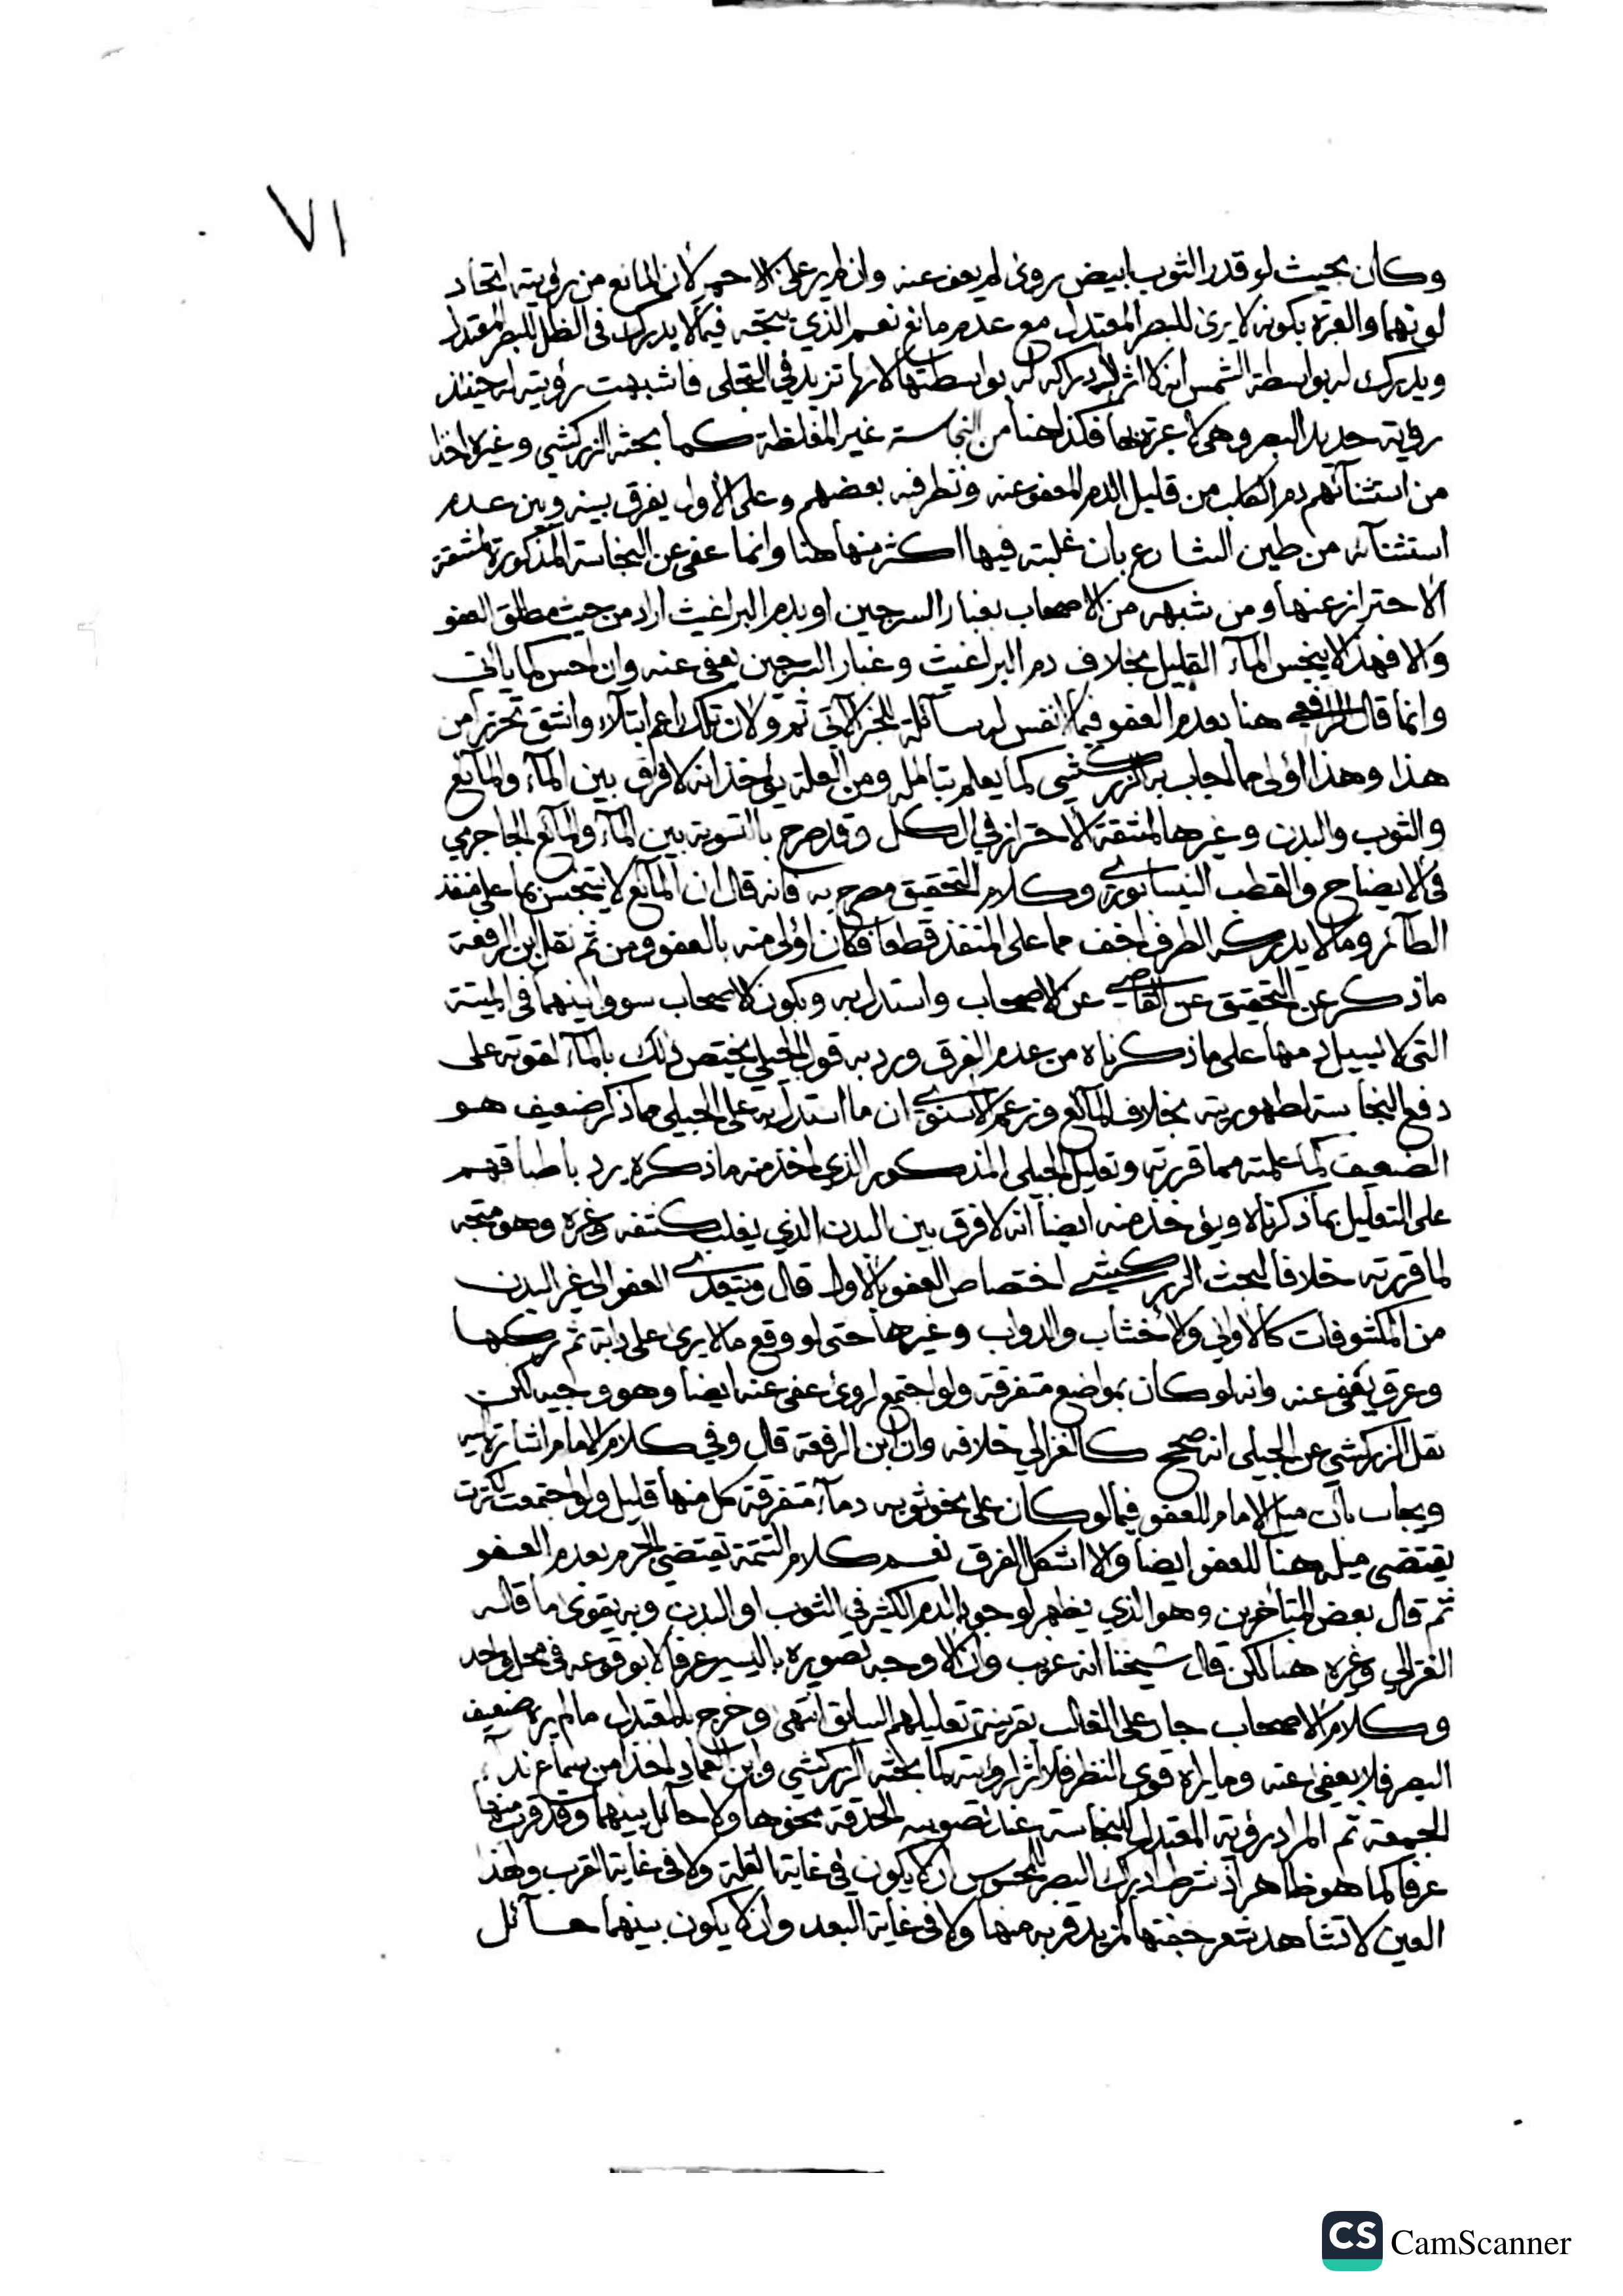 ٧١
وكان بحيث لو قدر الثوب ابيض روى لم يعف عنه وان لم ير على الاحمر لان المانع من رؤيته اتحاد
لونهما والعبرة بكونه لا يرى للبصر المعتدل مع عدم مانع نعم الذي يتجه فيما لا يدرك في الظل للبصر المعتدل
ويدرك له بواسطة الشمس انه لا اثر لادراكه له بواسطتها لانها تزيد في التجلى فاشبهت رؤيته له حينئذ
رؤية حديد البصر وهى لا عبرة بها فكذا هنا من النجاسة غير المغلظة كما بحثه الزركشي وغيره اخذا
من استثنائهم دم الكلب من قليل الدم المعفو عنه ونظر فيه بعضهم وعلى الاول يفرق بينه وبين عدم
استثنائه من طين الشارع بان غلبته فيها اكثر منها هنا وانما عفى عن النجاسة المذكورة لمشقة
الاحتراز عنها ومن شبهه من الاصحاب بغبار السرجين او بدم البراغيث اراد من حيث مطلق العفو
والا فهذا لا ينجس الماء القليل بخلاف دم البراغيث وغبار السرجين يعفى عنه وان احس كما ياتى
وانما قال الرافعي هنا بعدم العفو فيما لا نفس له سائلة للخبر الآتي ثم ولان تلك اعم ابتلاء واشق تحرزا من
هذا وهذا اولى مما اجاب به الزركشي كما يعلم بتامله ومن العلة يؤخذ انه لا فرق بين الماء والمائع
والثوب والبدن وغيرها لمشقة الاحتراز في الكل وقد صرح بالتسوية بين الماء والمائع الجاجرمي
في الايضاح والقطب النيسابوري وكلام التحقيق مصرح به فانه قال ان المائع لا يتنجس بما على منفذ
الطائر وما لا يدركه الطرف اخف مما على المنفذ قطعا فكان اولى منه بالعفو ومن ثم نقل ابن الرفعة
ما ذكر عن التحقيق عن القاضي عن الاصحاب واستدل به وبكون الاصحاب سووا بينهما في الميتة
التى لا يسيل دمها على ما ذكرناه من عدم الفرق ورد به قول الجيلي يختص ذلك بالماء لقوته على
دفع النجاسة لطهوريته بخلاف المائع وزعم الاسنوي ان ما استدل به على الجيلى مما ذكر ضعيف هو
الضعيف كما علمته مما قررته وتعليل الجيلى المذكور الذي اخذ منه ما ذكره يرد باطباقهم
على التعليل بما ذكرناه ويؤخذ منه ايضا انه لا فرق بين البدن الذي يغلب كشفه وغيره وهو متجه
لما قررته خلافا لبحث الزركشي اختصاص العفو بالاول قال ويتعدى العفو الى غير البدن
من المكشوفات كالاواني والاخشاب والدواب وغيرها حتى لو وقع ما لا يرى على دابة ثم ركبها
وعرق يعفى عنه وانه لو كان بمواضع متفرقة ولو اجتمع لروئ عفى عنه ايضا وهو وجيه لكن
نقل الزركشي عن الجيلى انه صحح كالغزالي خلافه وان ابن الرفعة قال وفي كلام الامام اشارة اليه
ويجاب بان ميل الامام للعفو فيما لو كان على نحو ثوبه دماء متفرقة كل منها قليل ولو اجتمعت لكثرت
يقتضى ميله هنا للعفو ايضا والا اشكل الفرق نعم كلام التتمة يقتضي الجزم بعدم العفو
ثم قال بعض المتأخرين وهو الذي يظهر لوجود الدم الكثير في الثوب او البدن وبه يقوى ما قاله
الغزالي وغيره هنا لكن قال شيخنا انه غريب وان الاوجه تصويره باليسير عرفا لا بوقوعه في محل واحد
وكلام الاصحاب جار على الغالب بقرينة تعليلهم السابق انتهى وخرج بالمعتدل ما لم يره ضعيف
البصر فلا يعفى عنه وما يراه قوي النظر فلا اثر لرؤيته كما بحثه الزركشي وابن العماد اخذا من سماع نداء
الجمعة ثم المراد رؤية المعتدل للنجاسة عند تصويبه الحدقة نحوها ولا حائل بينهما وقد قرب منها
عرفا كما هو ظاهر اذ شرط ادراك البصر للمحسوس ان لا يكون في غاية القلة ولا في غاية القرب ولهذا
العين لا تشاهد شعر جفنها لمزيد قربه منها ولا في غاية البعد وان لا يكون بينهما حائل
CS CamScanner